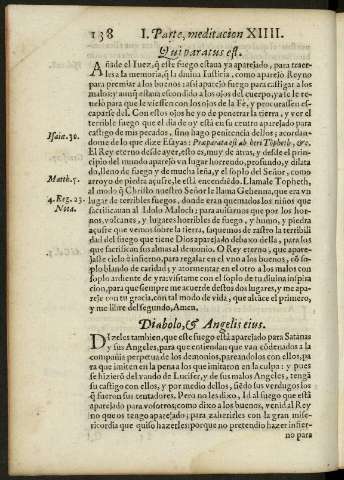 138 I. Parte, meditacion XIIII.
Qui paratus est.
Añade el Iuez, q̃ este fuego estaua ya aparejado, para traer-
les a la memoria, q̃ la diuina Iusticia, como aparejó Reyno
para premiar a los buenos : assi aparejò fuego para castigar a los
malos: y aunq̃ estaua escondido a los ojos del cuerpo, ya se le re-
ueló para que le viessen con los ojos de la Fé, y procurassen es-
caparse del. Con estos ojos he yo de penetrar la tierra, y ver el
terrible fuego que el dia de oy està en su centro aparejado para
castigo de mis pecados, sino hago penitencia dellos; acordan-
Isaiæ. 30.
dome de lo que dize Esayas: Præparata est ab heri Topheth, &c.
El Rey eterno desde ayer, esto es, muy de atras, y desde el princi-
pio del mundo aparejò vn lugar horrendo, profundo, y dilata
do, lleno de fuego y de mucha leña, y el soplo del Señor, como
Matth. 5.
arroyo de piedra açufre, le está encendiendo. Llamale Topheth,
al modo q̃ Christo nuestro Señor le llama Gehenna, que era vn
4. Reg. 23.
lugar de terribles fuegos, donde eran quemados los niños que
Nota.
sacrificauan al Idolo Moloch; para auisarnos que por los hor-
nos, volcanes, y lugares horribles de fuego, y humo, y piedra
açufre que vemos sobre la tierra, saquemos de rastro la terribili
dad del fuego que tiene Dios aparejado debaxo della, para los
que sacrifican sus almas al demonio. O Rey eterno, que apare-
jaste cielo è infierno, para regalar en el vno a los buenos, cõ so-
plo blando de caridad, y atormentar en el otro a los malos con
soplo ardiente de yra; visitame con el soplo de tu diuina inspira
cion, para que siempre me acuerde destos dos lugares, y me apa-
reje con tu gracia, con tal modo de vida, que alcãce el primero,
y me libre del segundo, Amen.
Diabolo, & Angelis eius.
Dizeles tambien, que este fuego està aparejado para Satanas
y sus Angeles, para que entiendan que van cõdenados a la
compañia perpetua de los demonios, pareandolos con ellos, pa
ra que imiten en la pena a los que imitaron en la culpa : y pues
se hizierõ del vando de Lucifer, y de sus malos Angeles, tengã
su castigo con ellos, y por medio dellos, siẽdo sus verdugos los
q̃ fueron sus tentadores. Pero no les dixo, Id al fuego que està
aparejado para vosotros; como dixo a los buenos, venid al Rey
no que os tengo aparejado; para zaherirles con la gran mise-
ricordia que quiso hazerles: porque no pretendio hazer infier-
no para